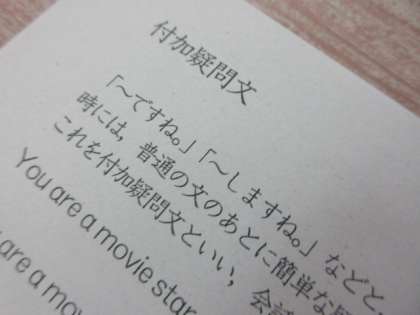 付加疑問文
「～ですね。」「～しますね。」などと,
時には, 普通の文のあとに簡単な
これを付加疑問文といい, 会
You are a movie star
are a mov